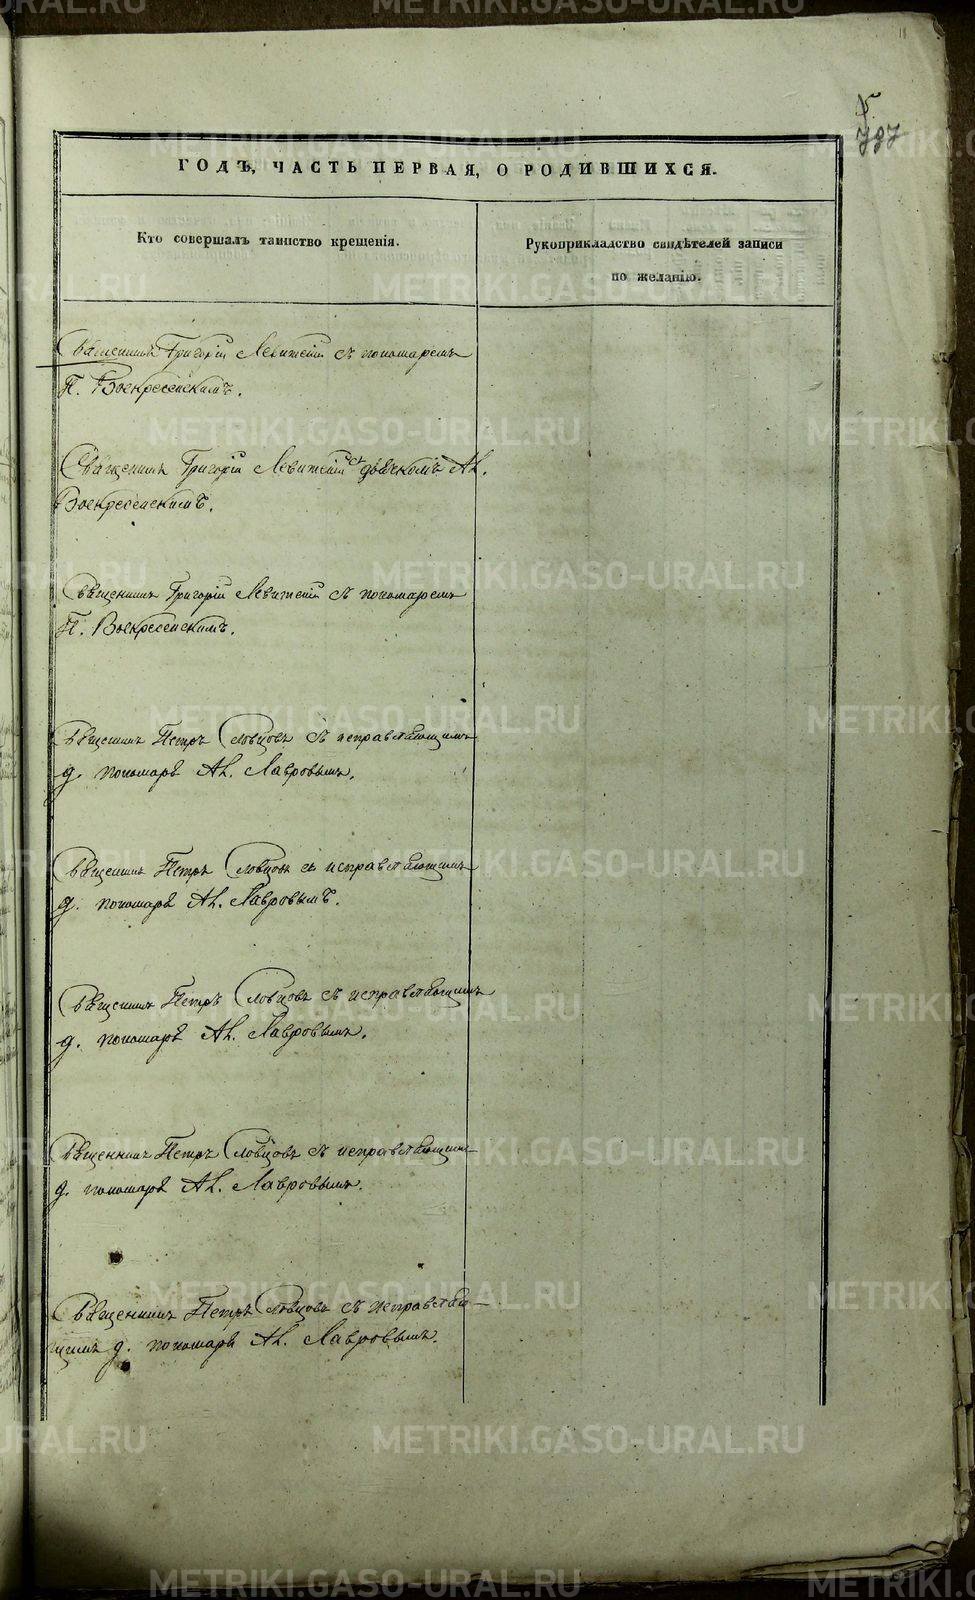 787
ГОДЪ, ЧАСТЬ ПЕРВАЯ, О РОДИВШИХСЯ.
Кто совершалъ таинство крещенія.
Рукоприкладство свидѣтелей записи
по желанію.
Священникъ Григорій Левитскій съ пономаремъ
П. Воскресенскимъ.
Священникъ Григорій Левитскій съ дьячкомъ Ал.
Воскресенскимъ.
Священникъ Григорій Левитскій съ пономаремъ
П. Воскресенскимъ.
Священникъ Петръ Словцовъ съ исправляющимъ
д. пономаря Ал. Лавровымъ.
Священникъ Петръ Словцовъ съ исправляющимъ
д. пономаря Ал. Лавровымъ.
Священникъ Петръ Словцовъ съ исправляющимъ
д. пономаря Ал. Лавровымъ.
Священникъ Петръ Словцовъ съ исправляющимъ
д. пономаря Ал. Лавровымъ.
Священникъ Петръ Словцовъ съ исправляю-
щимъ д. пономаря Ал. Лавровымъ.
METRIKI.GASO-URAL.RU